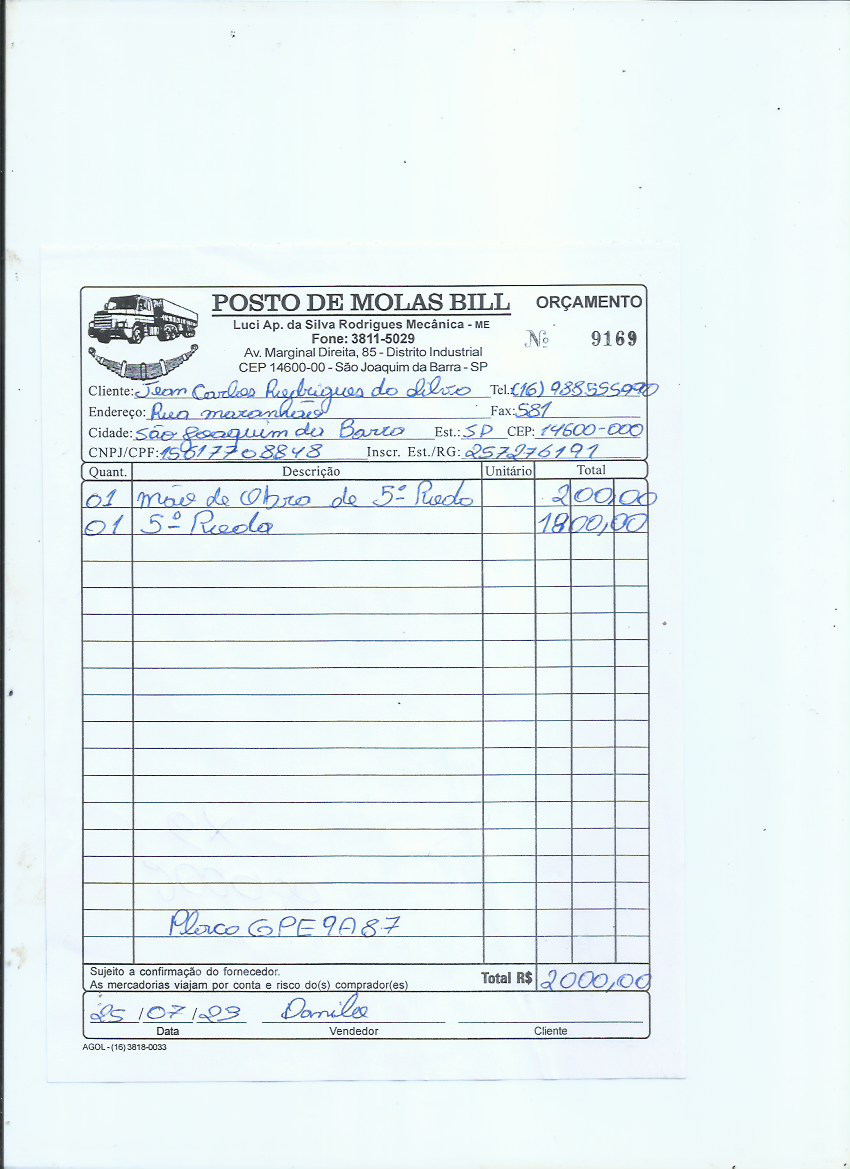 POSTO DE MOLAS BILL
ORÇAMENTO
Luci Ap. da Silva Rodrigues Mecânica - ME
Fone: 3811-5029
Nº 9169
Av. Marginal Direita, 85 - Distrito Industrial
CEP 14600-00 - São Joaquim da Barra - SP
Cliente: Jean Carlos Rodrigues da Silva Tel.: (16) 988595990
Endereço: Rua maranhão Fax: 581
Cidade: São Joaquim da Barra Est.: SP CEP: 14600-000
CNPJ/CPF: 15617708848 Inscr. Est./RG: 257276191
Quant. Descrição Unitário Total
01 mão de Obra de 5ª Roda 200,00
01 5ª Roda 1800,00
Placa GPE9A87
Sujeito a confirmação do fornecedor.
As mercadorias viajam por conta e risco do(s) comprador(es)
Total R$ 2000,00
25 / 07 / 23 Danilo
Data Vendedor Cliente
AGOL - (16) 3818-0033